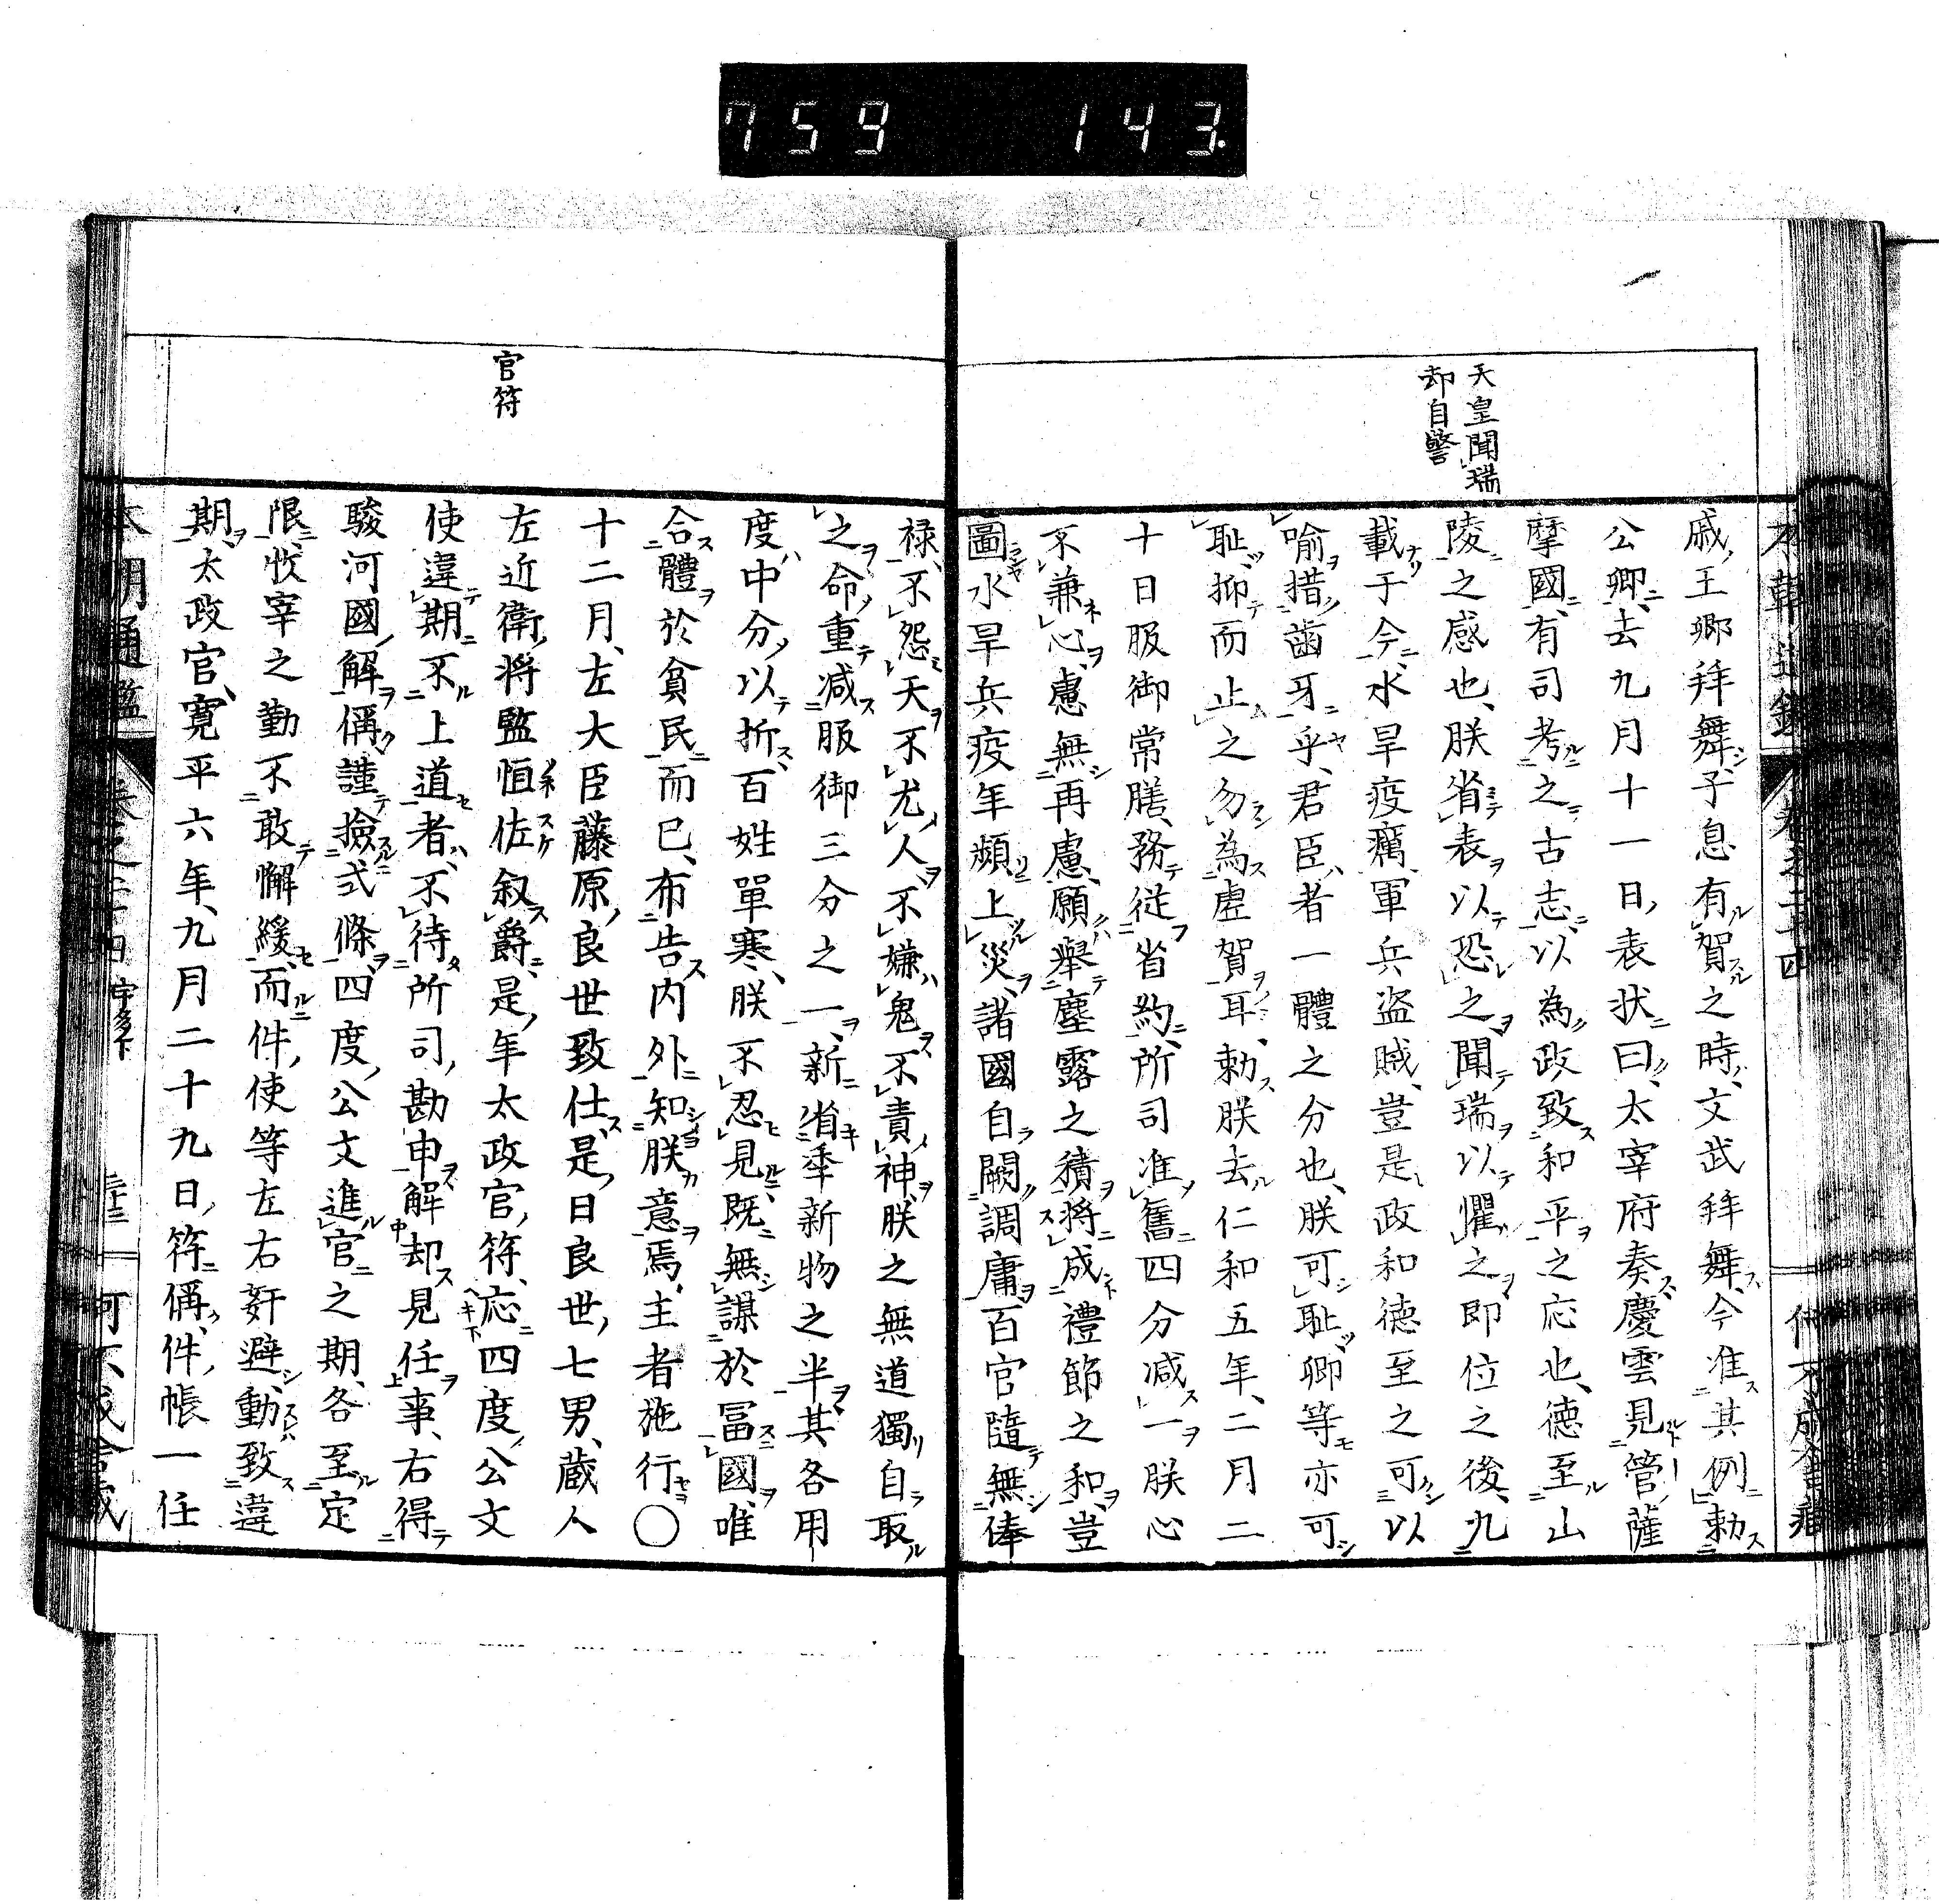 759 143.
天皇聞瑞
却自警
戚王卿拜舞子息有賀之時文武拜舞今准其例勅
公卿去九月十一日表状曰太宰府奏慶雲見管薩
摩國有司考之古志以為政致和平之応也徳至山
陵之感也朕省表以恐之聞瑞以懼之即位之後九
載于今水旱疫癘軍兵盗賊豈是政和徳至之可以
喻措齒牙乎君臣者一體之分也朕可恥卿等亦可
恥抑而止之勿為虚賀耳勅朕去仁和五年二月二
十日服御常膳務従省約所司准舊四分减一朕心
不兼心慮無再慮願擧塵露之積将成禮節之和豈
圖水旱兵疫年頻上災諸國自闕調庸百官隨無俸
禄不怨天不尤人不嫌鬼不責神朕之無道獨自取
之命重减服御三分之一新省季新物之半其各用
度中分以折百姓單寒朕不忍見既無謀於冨國唯
合體於貧民而已布告内外知朕意焉主者施行〇
十二月左大臣藤原良世致仕是日良世七男蔵人
左近衛将監恒佐叙爵是年太政官符応四度公文
使違期不上道者不待所司勘申解却見任事右得
駿河國解偁謹撿式條四度公文進官之期各至定
限牧宰之勤不敢懈緩而件使等左右姧避動致違
期太政官寛平六年九月二十九日符偁件帳一任
官符
本朝通鑑 卷之二十四 宇多下